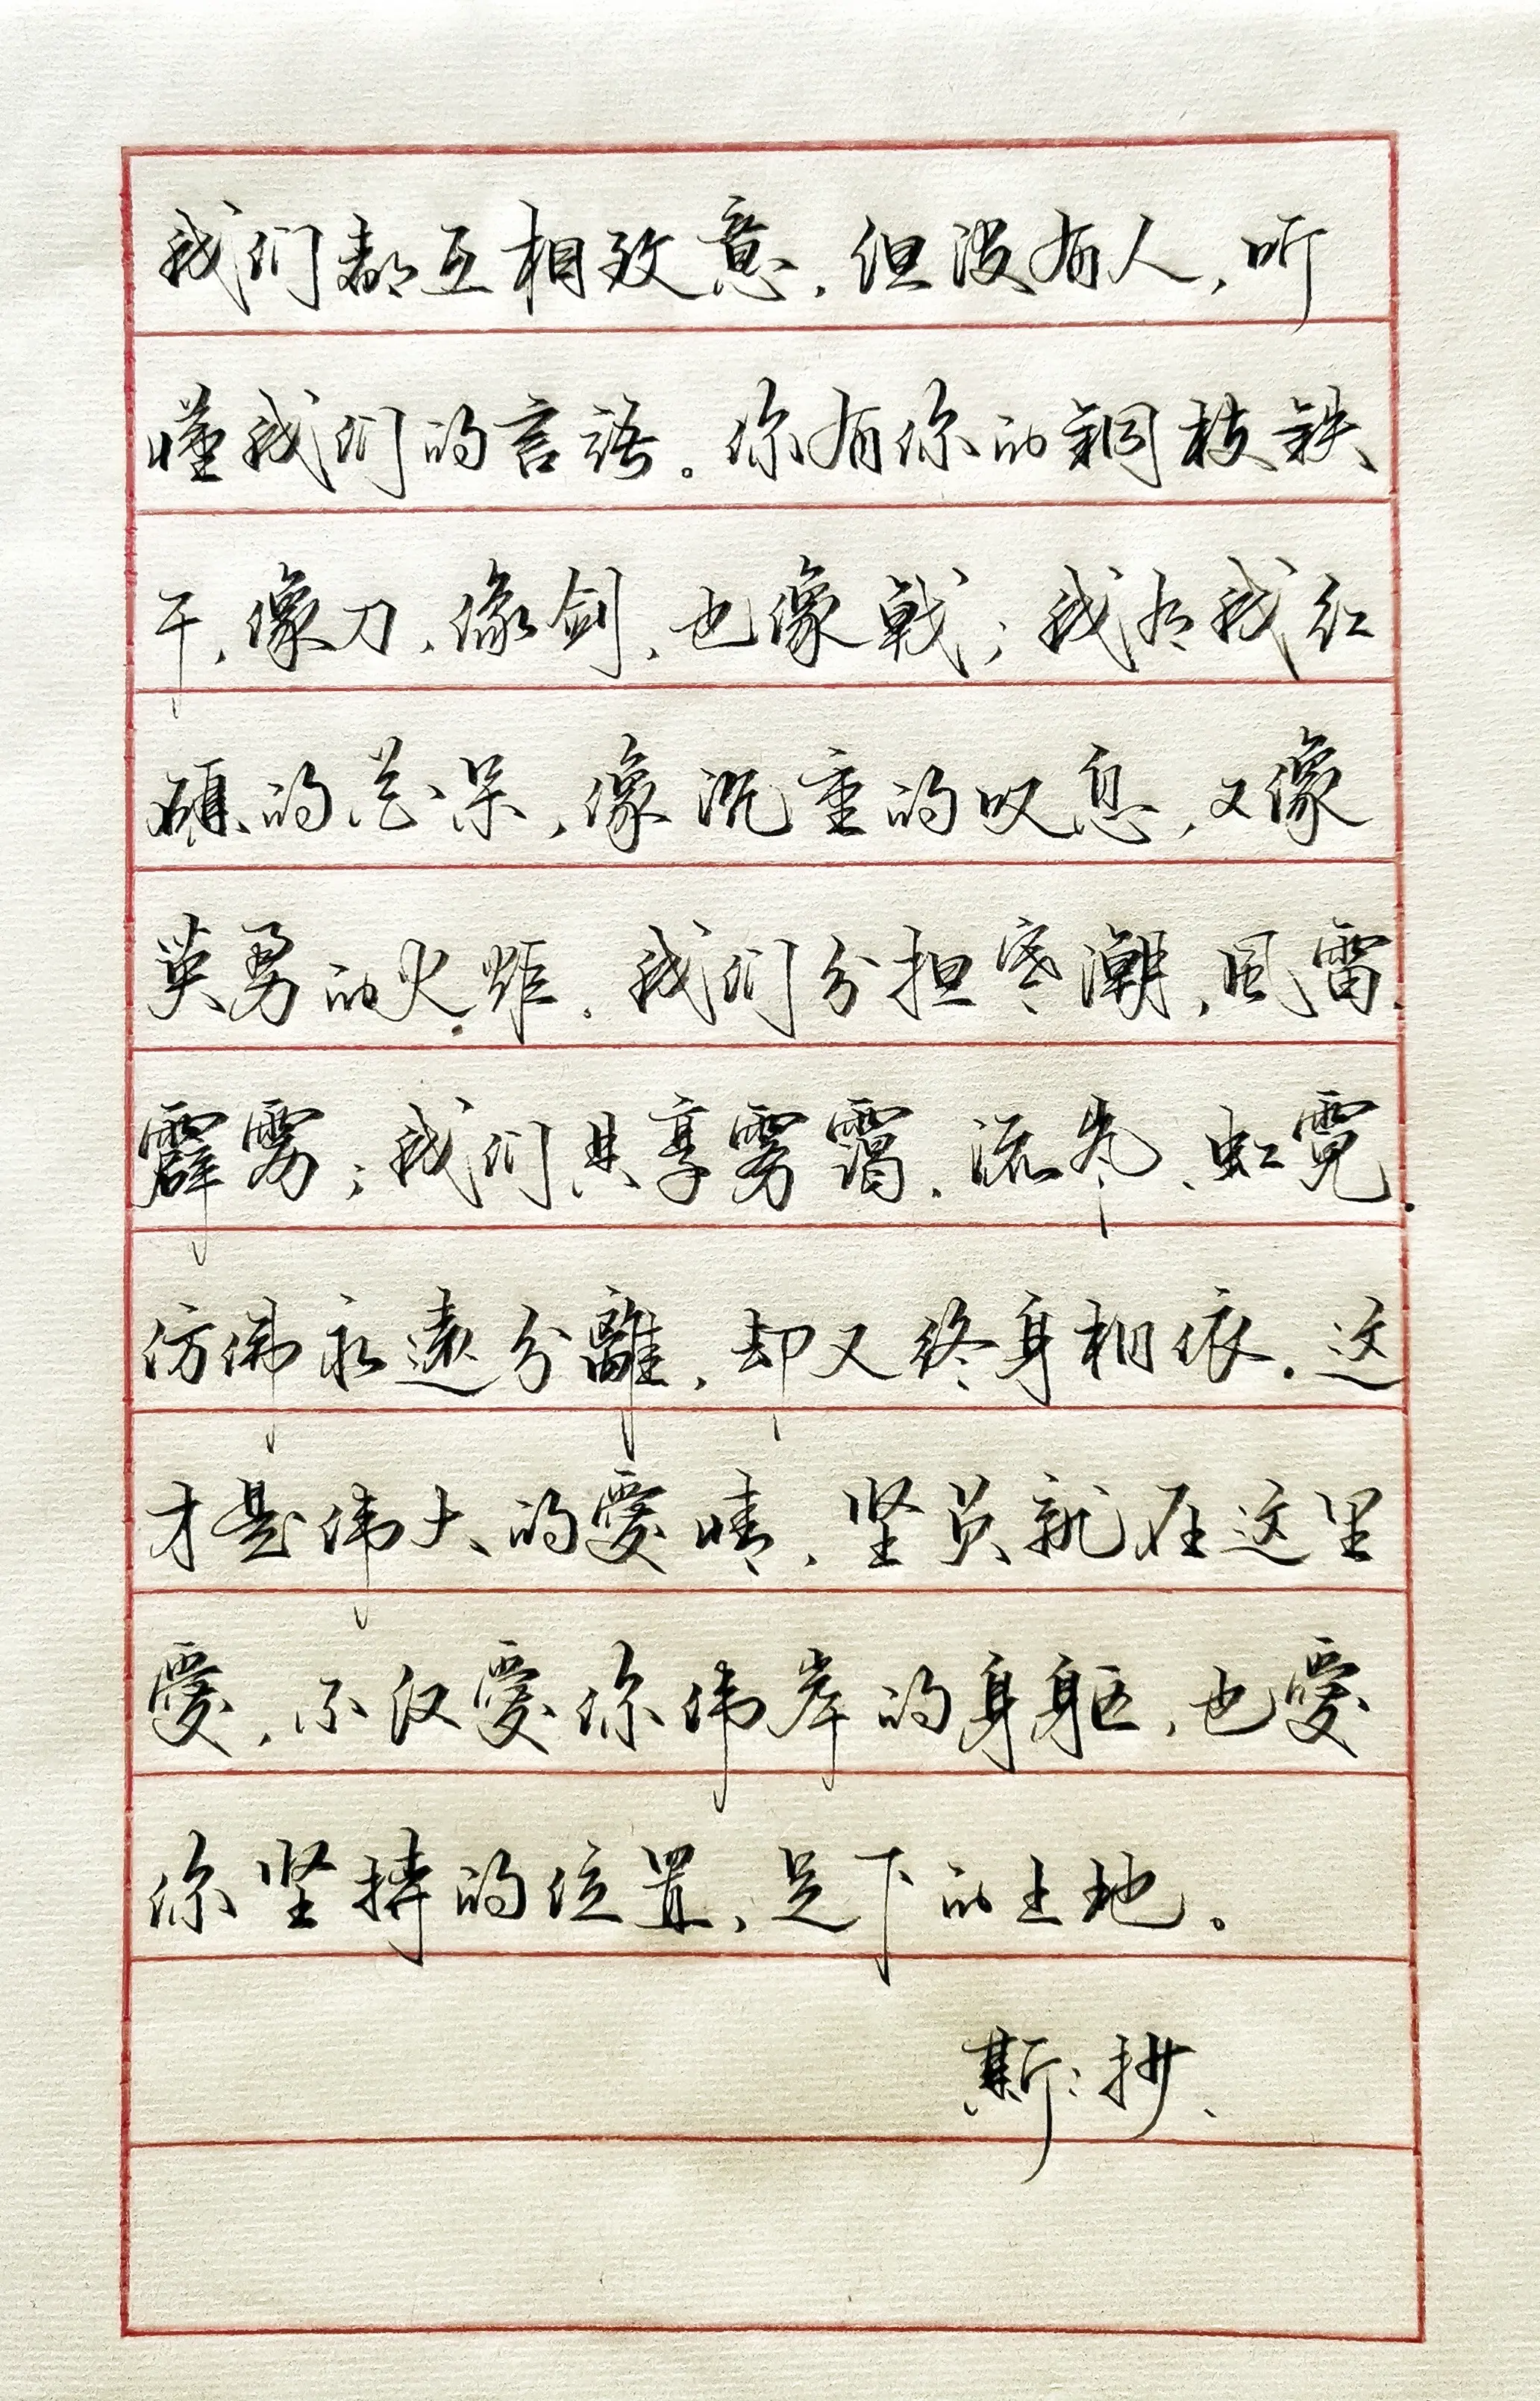 我们都互相致意，但没有人，听
懂我们的言语。你有你的铜枝铁
干，像刀、像剑、也像戟；我有我红
硕的花朵，像沉重的叹息，又像
英勇的火炬。我们分担寒潮、风雷、
霹雳；我们共享雾霭、流岚、虹霓。
仿佛永远分離，却又终身相依。这
才是伟大的愛情，坚贞就在这里
愛，不仅愛你伟岸的身躯，也愛
你坚持的位置、足下的土地。
斯：抄、